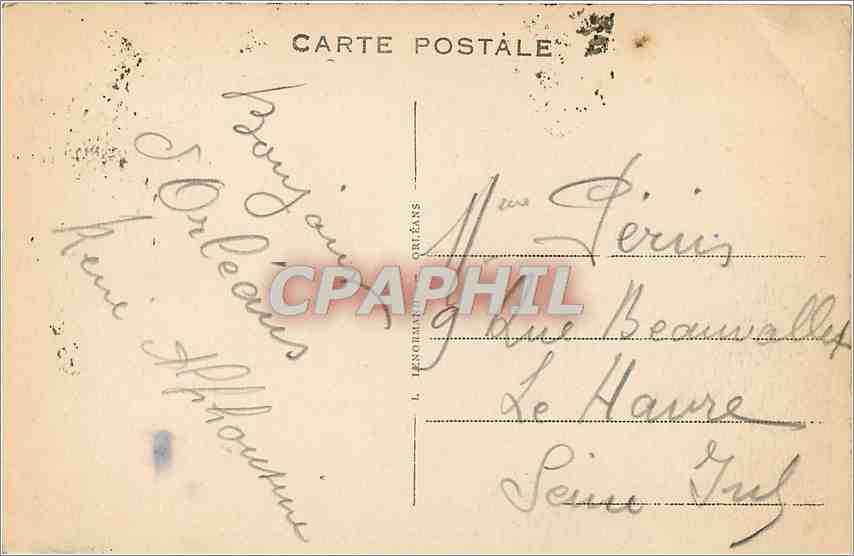 CARTE POSTALE
Bonjour
d'Orléans
René Alphonsine
L. LENORMAND - ORLÉANS
CPAPHIL
Mme Périn
9 Rue Beauvallet
Le Havre
Seine Inf